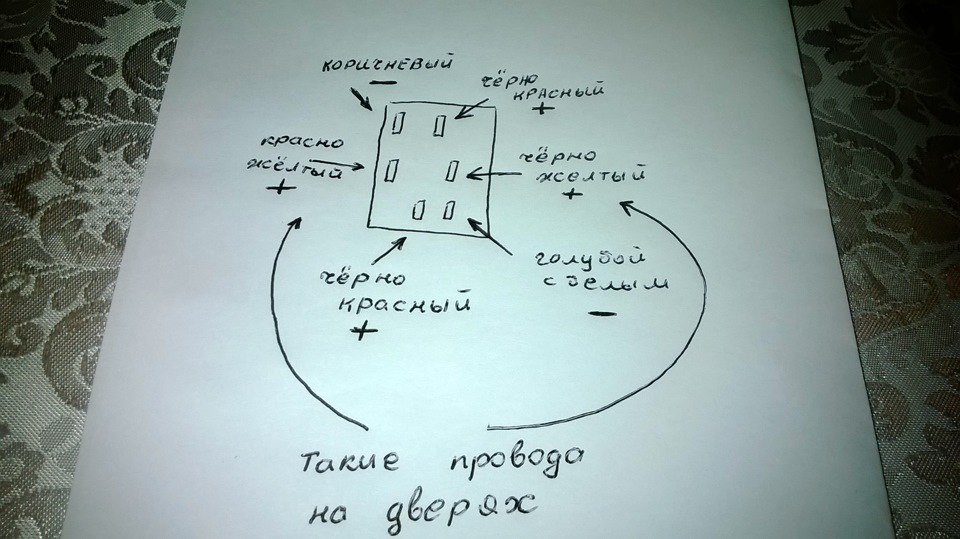 коричневый
−
чёрно
красный
+
красно
жёлтый
+
чёрно
желтый
+
голубой
с белым
−
чёрно
красный
+
такие провода
на дверях